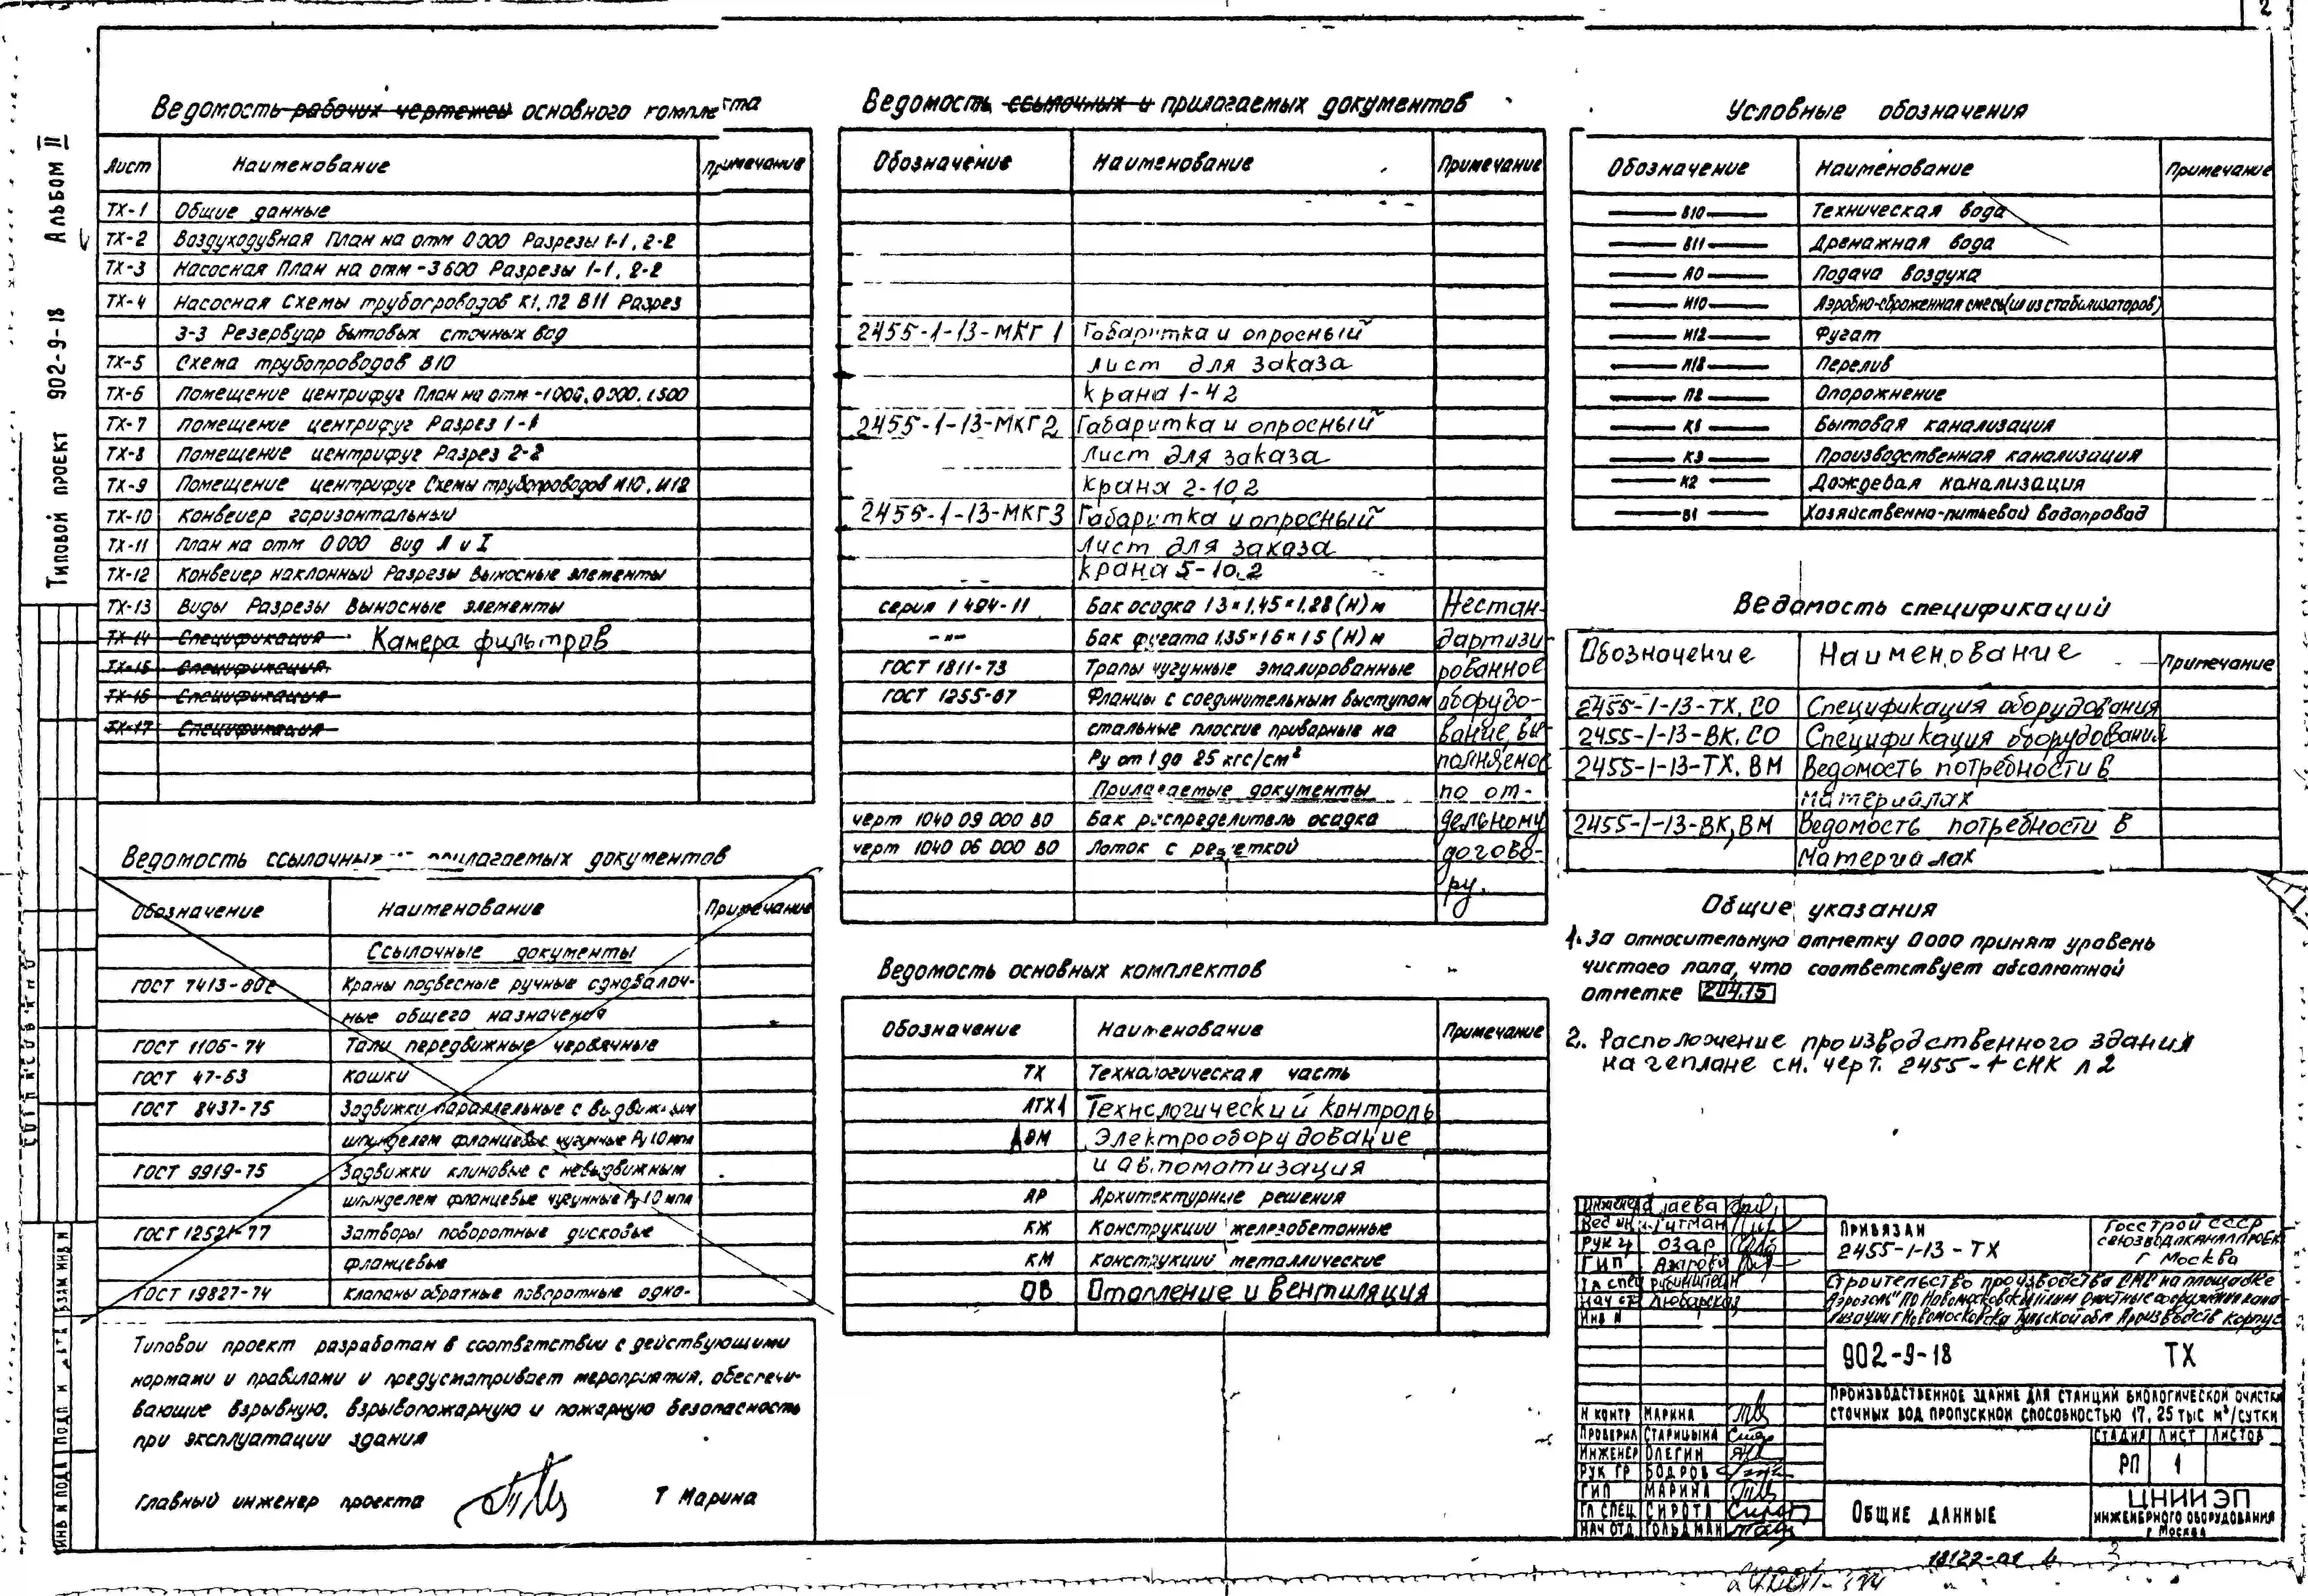 2
Альбом II
Типовой проект 902-9-18
Ведомость рабочих чертежей основного комплекта
Лист Наименование Примечание
ТХ-1 Общие данные
ТХ-2 Воздуходувная План на отм 0000 Разрезы 1-1, 2-2
ТХ-3 Насосная План на отм -3600 Разрезы 1-1, 2-2
ТХ-4 Насосная Схемы трубопроводов К1, П2 В11 Разрез
3-3 Резервуар бытовых сточных вод
ТХ-5 Схема трубопроводов В10
ТХ-6 Помещение центрифуг План на отм -1000, 0000, 1500
ТХ-7 Помещение центрифуг Разрез 1-1
ТХ-8 Помещение центрифуг Разрез 2-2
ТХ-9 Помещение центрифуг Схемы трубопроводов И10, И12
ТХ-10 Конвейер горизонтальный
ТХ-11 План на отм 0000 Вид А и I
ТХ-12 Конвейер наклонный Разрезы Выносные элементы
ТХ-13 Виды Разрезы Выносные элементы
ТХ-14 Спецификация Камера фильтров
ТХ-15 Спецификация
ТХ-16 Спецификация
ТХ-17 Спецификация
Ведомость ссылочных и прилагаемых документов
Обозначение Наименование Примечание
Ссылочные документы
ГОСТ 7413-80е Краны подвесные ручные однобалоч-
ные общего назначения
ГОСТ 1106-74 Тали передвижные червячные
ГОСТ 47-63 Кошки
ГОСТ 8437-75 Задвижки параллельные с выдвижным
шпинделем фланцевые чугунные Ру 10 мпа
ГОСТ 9919-75 Задвижки клиновые с невыдвижным
шпинделем фланцевые чугунные Ру 10 мпа
ГОСТ 12521-77 Затворы поворотные дисковые
фланцевые
ГОСТ 19827-74 Клапаны обратные поворотные одно-
Типовой проект разработан в соответствии с действующими
нормами и правилами и предусматривает мероприятия, обеспечи-
вающие взрывную, взрывопожарную и пожарную безопасность
при эксплуатации здания
Главный инженер проекта Т Марина
Ведомость ссылочных и прилагаемых документов
Обозначение Наименование Примечание
2455-1-13-МКГ 1 Габаритка и опросный
лист для заказа
крана 1-4 2
2455-1-13-МКГ2 Габаритка и опросный
лист для заказа
крана 2-10,2
2455-1-13-МКГ3 Габаритка и опросный
лист для заказа
крана 5-10.2
серия 1 494-11 Бак осадка 1 3×1.45×1.28 (Н) м Нестан-
-"- Бак фугата 1.35×1 6×1 5 (Н) м дартизи-
ГОСТ 1811-73 Трапы чугунные эмалированные рованное
ГОСТ 1255-67 Фланцы с соединительным выступом оборудо-
стальные плоские приварные на вание, вы-
Ру от 1 до 25 кгс/см² полняемое
Прилагаемые документы по от-
черт 1040 09 000 ВО Бак распределитель осадка дельному
черт 1040 06 000 ВО Лоток с решеткой догово-
ру.
Ведомость основных комплектов
Обозначение Наименование Примечание
ТХ Технологическая часть
АТХ1 Технологический контроль
Электрооборудование
и автоматизация
АР Архитектурные решения
КЖ Конструкции железобетонные
КМ Конструкции металлические
ОВ Отопление и вентиляция
Условные обозначения
Обозначение Наименование Примечание
В10 Техническая вода
В11 Дренажная вода
А0 Подача воздуха
И10 Аэробно-сброженная смесь (ил из стабилизаторов)
И12 Фугат
И18 Перелив
П2 Опорожнение
К1 Бытовая канализация
К3 Производственная канализация
К2 Дождевая канализация
В1 Хозяйственно-питьевой водопровод
Ведомость спецификаций
Обозначение Наименование Примечание
2455-1-13-ТХ.СО Спецификация оборудования
2455-1-13-ВК.СО Спецификация оборудования
2455-1-13-ТХ.ВМ Ведомость потребности в
материалах
2455-1-13-ВК,ВМ Ведомость потребности в
материалах
Общие указания
1. За относительную отметку 0000 принят уровень
чистого пола, что соответствует абсолютной
отметке 204.15
2. Расположение производственного здания
на генплане см. черт. 2455-1 СНК л 2
Привязан
2455-1-13-ТХ
Госстрой СССР
Союзводоканалпроект
г Москва
902-9-18 ТХ
Производственное здание для станций биологической очистки
сточных вод пропускной способностью 17, 25 тыс м³/сутки
Н контр Марина
Проверил Старицына
Инженер Олегин
Рук гр Бодров
ГИП Марина
Гл спец Сирота
Нач отд Гольдман
Стадия Лист Листов
РП 1
Общие данные
ЦНИИЭП
инженерного оборудования
г Москва
18122-01
3